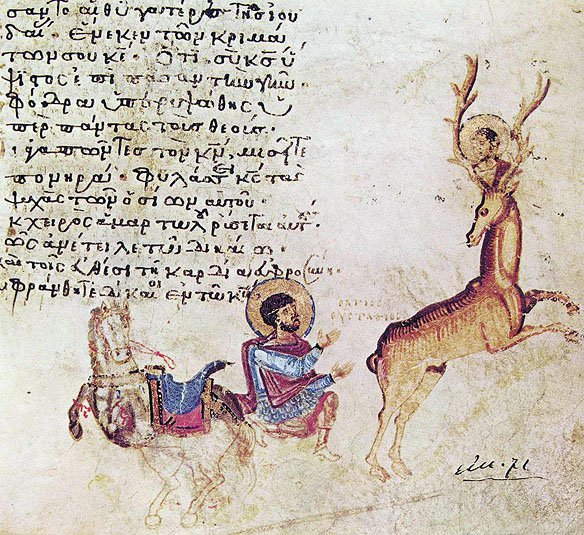 σαντο αἱ θυγατέρες τῆς ἰου
δαί· Ἕνεκεν τῶν κριμά
των σου κε· Ὅτι σὺ κς ὕ
ψιστος ἐπὶ πᾶσαν τὴν γῆν·
φόδρα ὑπερυψώθης ὑ
πὲρ πάντας τοὺς θεούς·
ἀγαπῶντες τὸν κν, μισεῖτε
πονηρά· Φυλάσσει κς τὰς
ψυχὰς τῶν ὁσίων αὐτοῦ·
κ χειρὸς ἁμαρτωλῶν ῥύσεται αὐτ
φῶς ἀνέτειλε τῷ δικαίῳ·
καὶ τοῖς εὐθέσι τῇ καρδίᾳ εὐφροσύν
υφράνθητε δίκαιοι ἐν τῷ κω
Ο ΑΓΙΟΣ
ΕΥΣΤΑΘΙΟΣ
εικ. 71